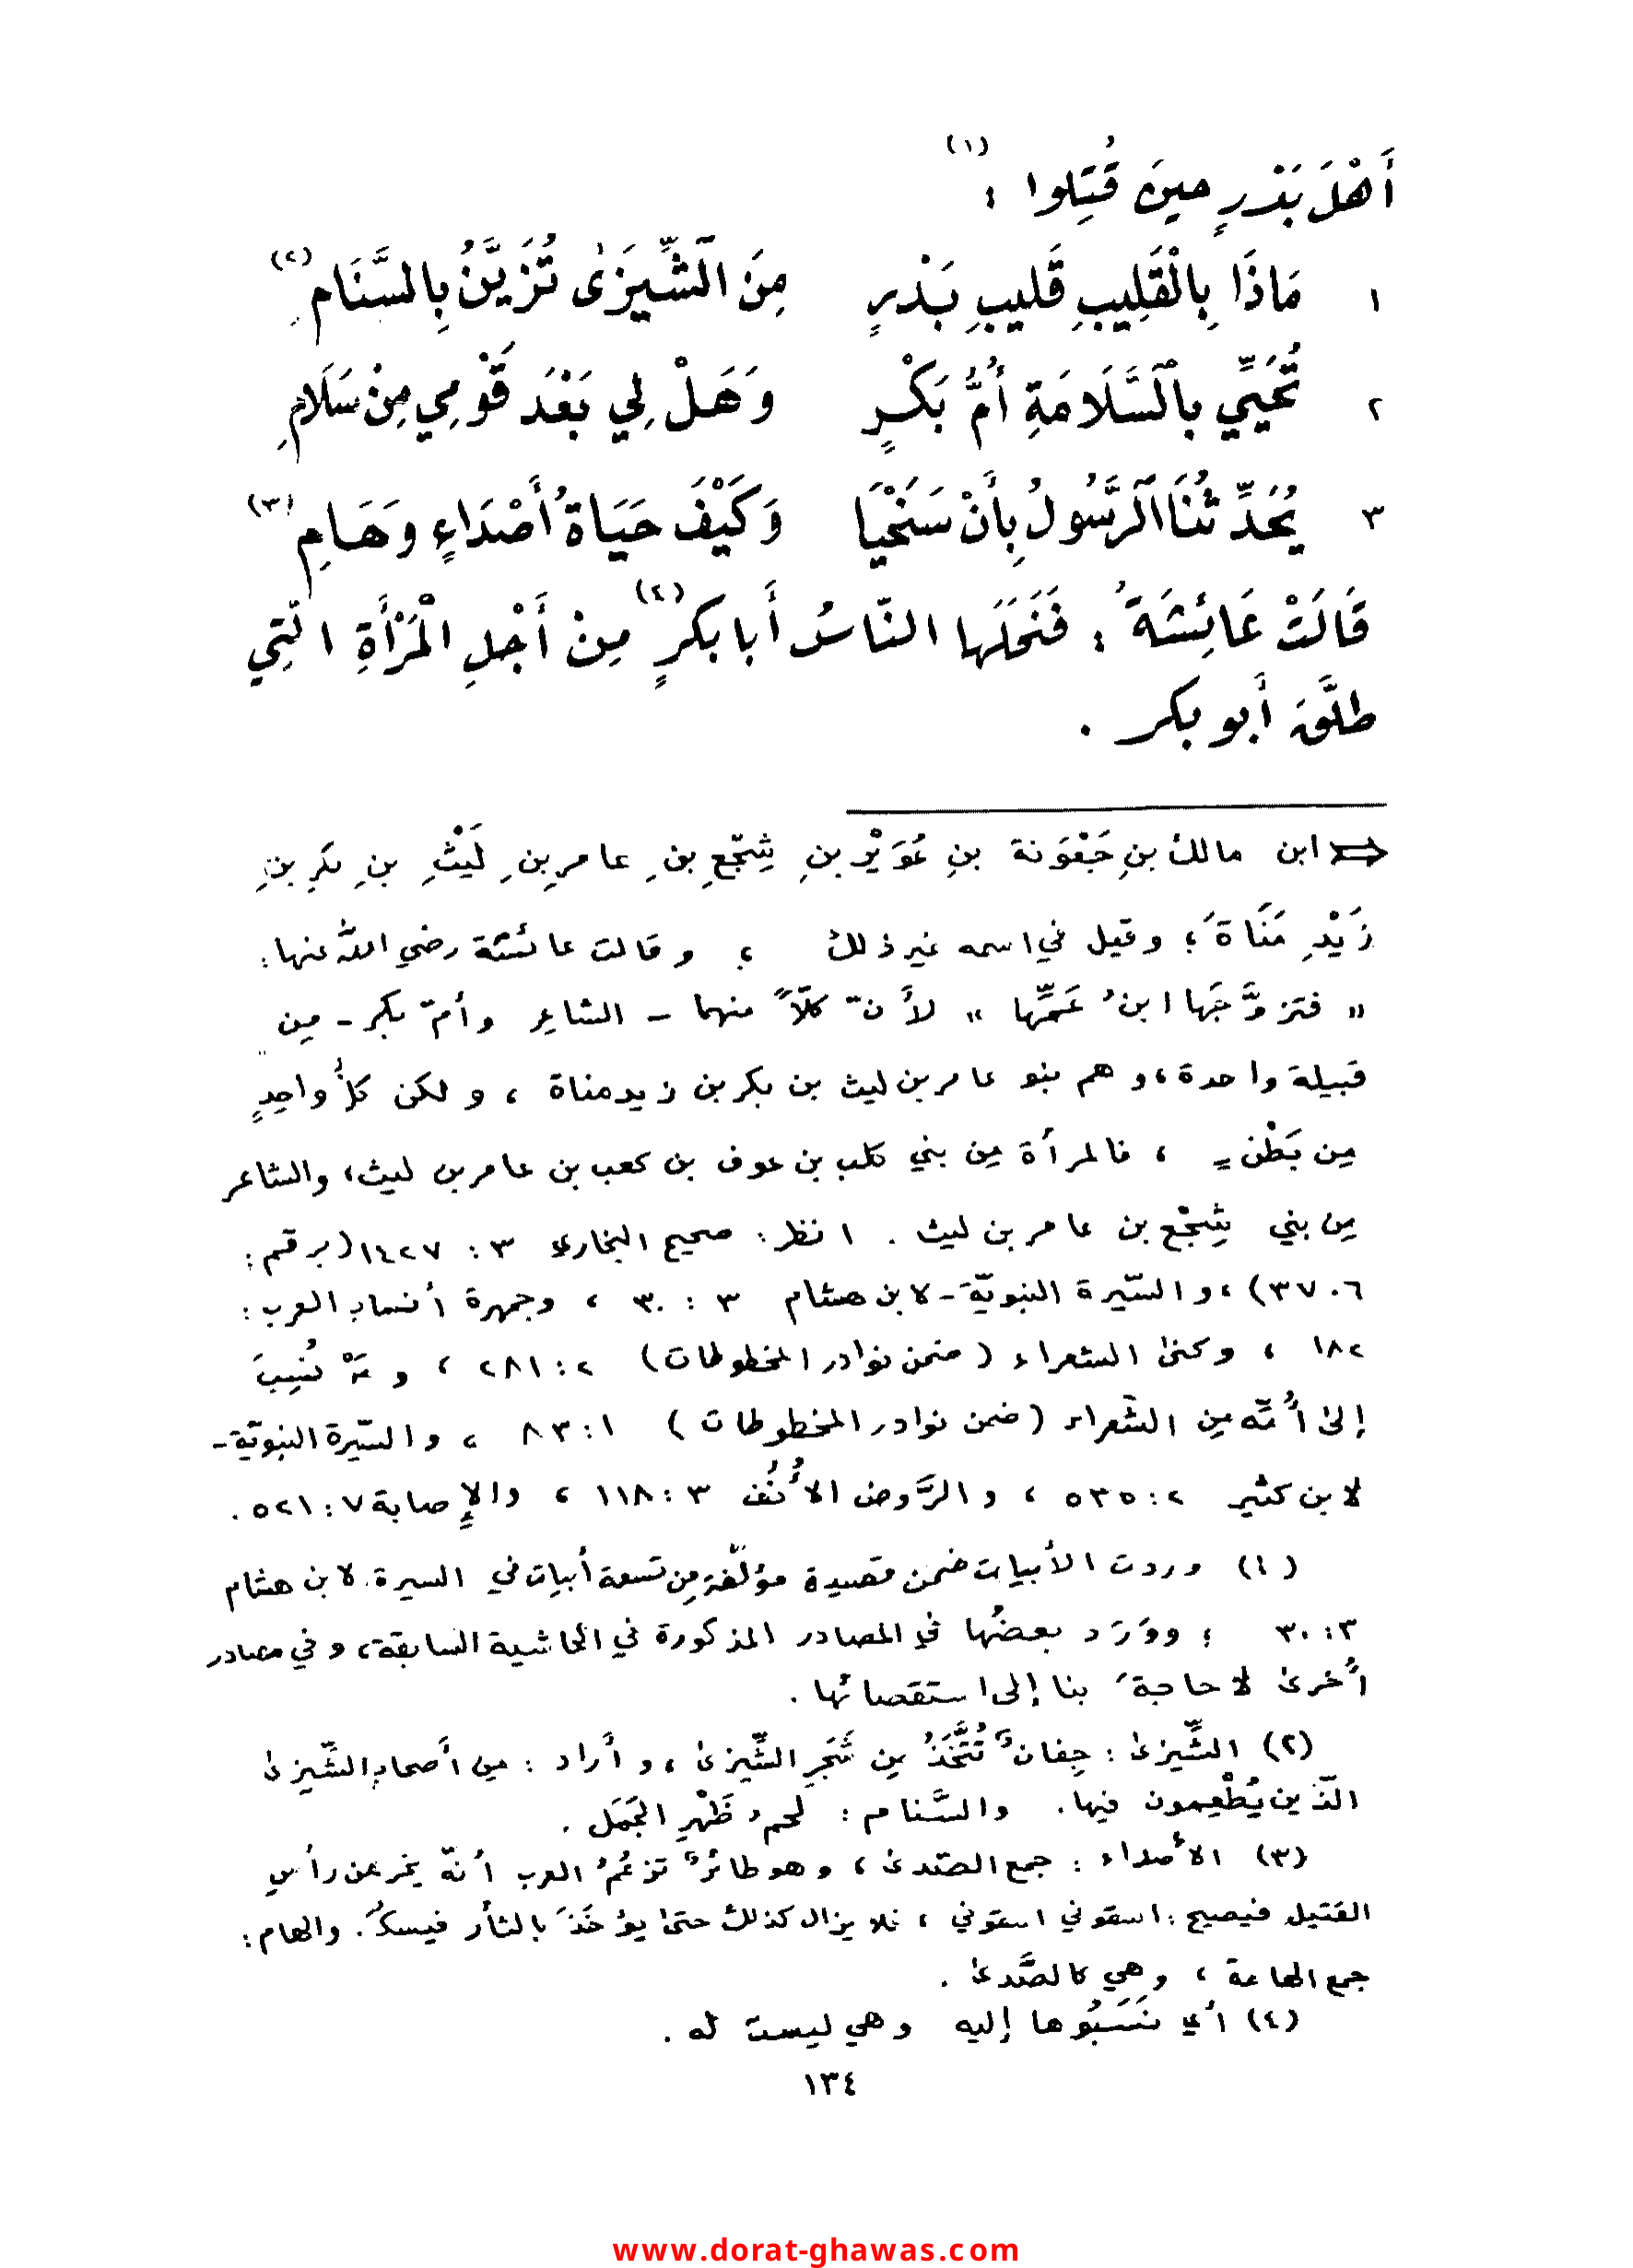 أَهْلَ بَدْرٍ حينَ قُتِلوا : (١)
١ مَاذَا بِالْقَلِيبِ قَليبِ بَدْرٍ مِنَ ٱلشِّيزَىٰ تُزَيَّنُ بِالسَّنَامِ (٢)
٢ تُحَيِّي بِٱلسَّلَامَةِ أُمُّ بَكْرٍ وَهَلْ لِي بَعْدَ قَوْمِي مِنْ سَلَامِ
٣ يُحَدِّثُنَا ٱلرَّسُولُ بِأَنْ سَنَحْيَا وَكَيْفَ حَيَاةُ أَصْدَاءٍ وَهَامِ (٣)
قَالَتْ عَائِشَةُ : فَنَحَلَها النّاسُ أَبا بكرٍ (٤) مِنْ أَجْلِ الْمَرْأَةِ الّتِي
طلَّقَ أَبو بكر .
⇐ ابن مالك بنِ جَعْوَنة بنِ عُوَيْرِ بنِ شِجْعِ بنِ عامرِ بنِ لَيْثِ بنِ بكرِ بنِ
زَيْدِ مَنَاةَ ؛ وقيل في اسمه غير ذلك ؛ وقالت عائشة رضي الله عنها :
« فتزوَّجَها ابنُ عَمِّها » لأنّ كلّاً منهما - الشاعِر وأمّ بكر - مِن
قبيلة واحدة ، وهم بنو عامر بن ليث بن بكر بن زيد مناة ، ولكن كلُّ واحِدٍ
مِن بَطْنٍ ، فالمرأة مِن بني كلب بن عوف بن كعب بن عامر بن ليث ، والشاعر
مِن بني شِجْع بن عامر بن ليث . انظر : صحيح البخاري ٣ : ١٤٢٧ (برقم :
٣٧٠٦) ، والسّيرة النبويّة - لابن هشام ٣ : ٣٠ ، وجمهرة أنساب العرب :
١٨٢ ، وكنى الشعراء (ضمن نوادر المخطوطات) ٢ : ٢٨١ ، ومَنْ نُسِبَ
إلى أُمّه مِن الشّعراء (ضمن نوادر المخطوطات) ١ : ٨٣ ، والسّيرة النبويّة -
لابن كثير ٢ : ٥٣٥ ، والرَّوض الأُنُف ٣ : ١١٨ ، والإصابة ٧ : ٥٢١ .
(١) وردت الأبيات ضمن قصيدة مؤلّفة مِن تسعة أبيات في السيرة لابن هشام
٣ : ٣٠ ؛ ووَرَد بعضُها في المصادر المذكورة في الحاشية السابقة ، وفي مصادر
أُخرى لا حاجةَ بنا إلى استقصائها .
(٢) الشِّيزى : جِفانٌ تُتَّخَذُ مِن شَجَرِ الشِّيزى ، وأَراد : مِن أَصحابِ الشّيزى
الّذين يُطْعِمون فيها . والسَّنام : لحمُ ظَهْرِ الجَمَل .
(٣) الأَصداء : جمع الصّدى ، وهو طائرٌ تزعُمُ العرب أنّه يخرج من رأسِ
القتيل فيصيح : اسقوني اسقوني ، فلا يزال كذلك حتى يؤخَذَ بالثأر فيسكُ . والهام :
جمع الهامة ، وهي كالصَّدى .
(٤) أي نَسَبُوها إليه وهي ليست له .
١٣٤
www.dorat-ghawas.com